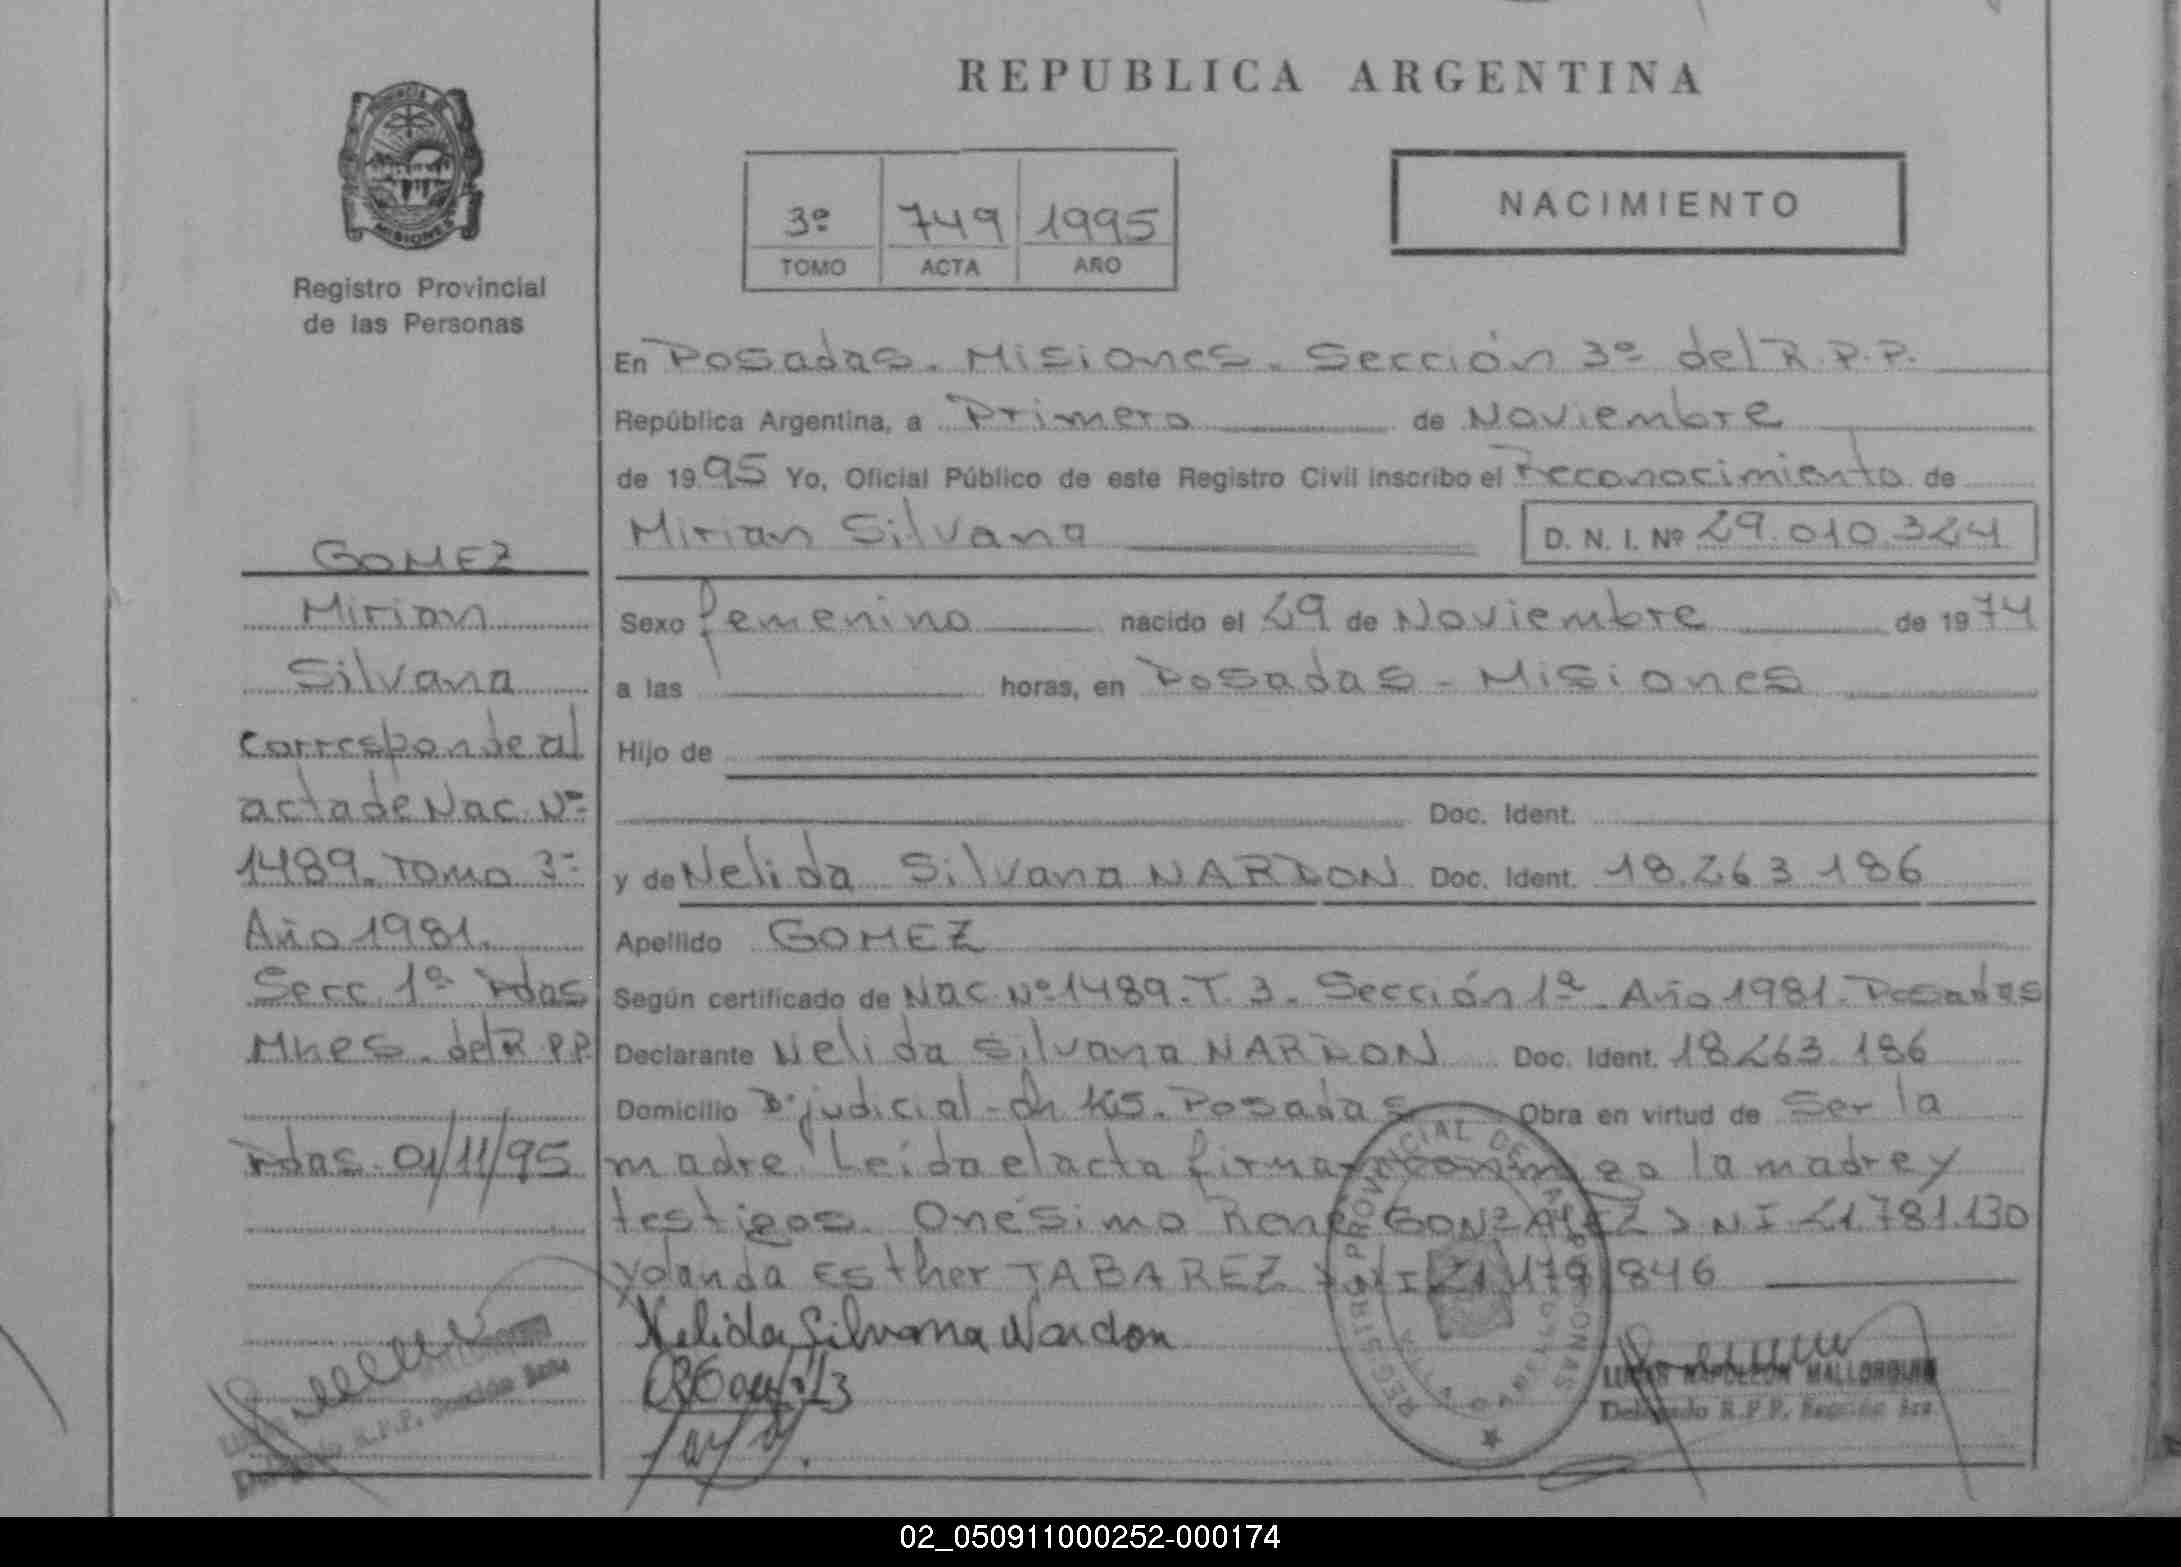 REPUBLICA ARGENTINA
PROVINCIA DE
MISIONES
Registro Provincial
de las Personas
3º 749 1995
TOMO ACTA AÑO
NACIMIENTO
En Posadas. Misiones. Sección 3º del R.P.P.
República Argentina, a Primero de Noviembre
de 1995 Yo, Oficial Público de este Registro Civil inscribo el Reconocimiento de
Mirian Silvana D. N. I. Nº 29.010.324
Sexo femenino nacido el 29 de Noviembre de 1974
a las horas, en Posadas - Misiones
Hijo de
Doc. Ident.
y de Nelida Silvana NARDON Doc. Ident. 18.263.186
Apellido GOMEZ
Según certificado de Nac. Nº 1489. T. 3. Sección 1ª. Año 1981. Posadas
Declarante Nelida Silvana NARDON Doc. Ident. 18263.186
Domicilio Bº judicial - ch 145. Posadas Obra en virtud de Ser la
madre. Leida el acta firma conmigo la madre y
testigos. Onésimo Rene GONZALEZ DNI 21.781.130
Yolanda Esther TABAREZ DNI 21.179.846
Nelida Silvana Nardon
LUCAS NAPOLEON MALLORQUIN
Delegado R.P.P. Sección 3ra.
REGISTRO PROVINCIAL DE LAS PERSONAS
GOMEZ
Mirian
Silvana
Corresponde al
acta de Nac. Nº
1489. Tomo 3º
Año 1981.
Secc 1ª Pdas
Mnes. del R.P.P.
Pdas. 01/11/95
R.P.P. Sección 3ra.
02_050911000252-000174